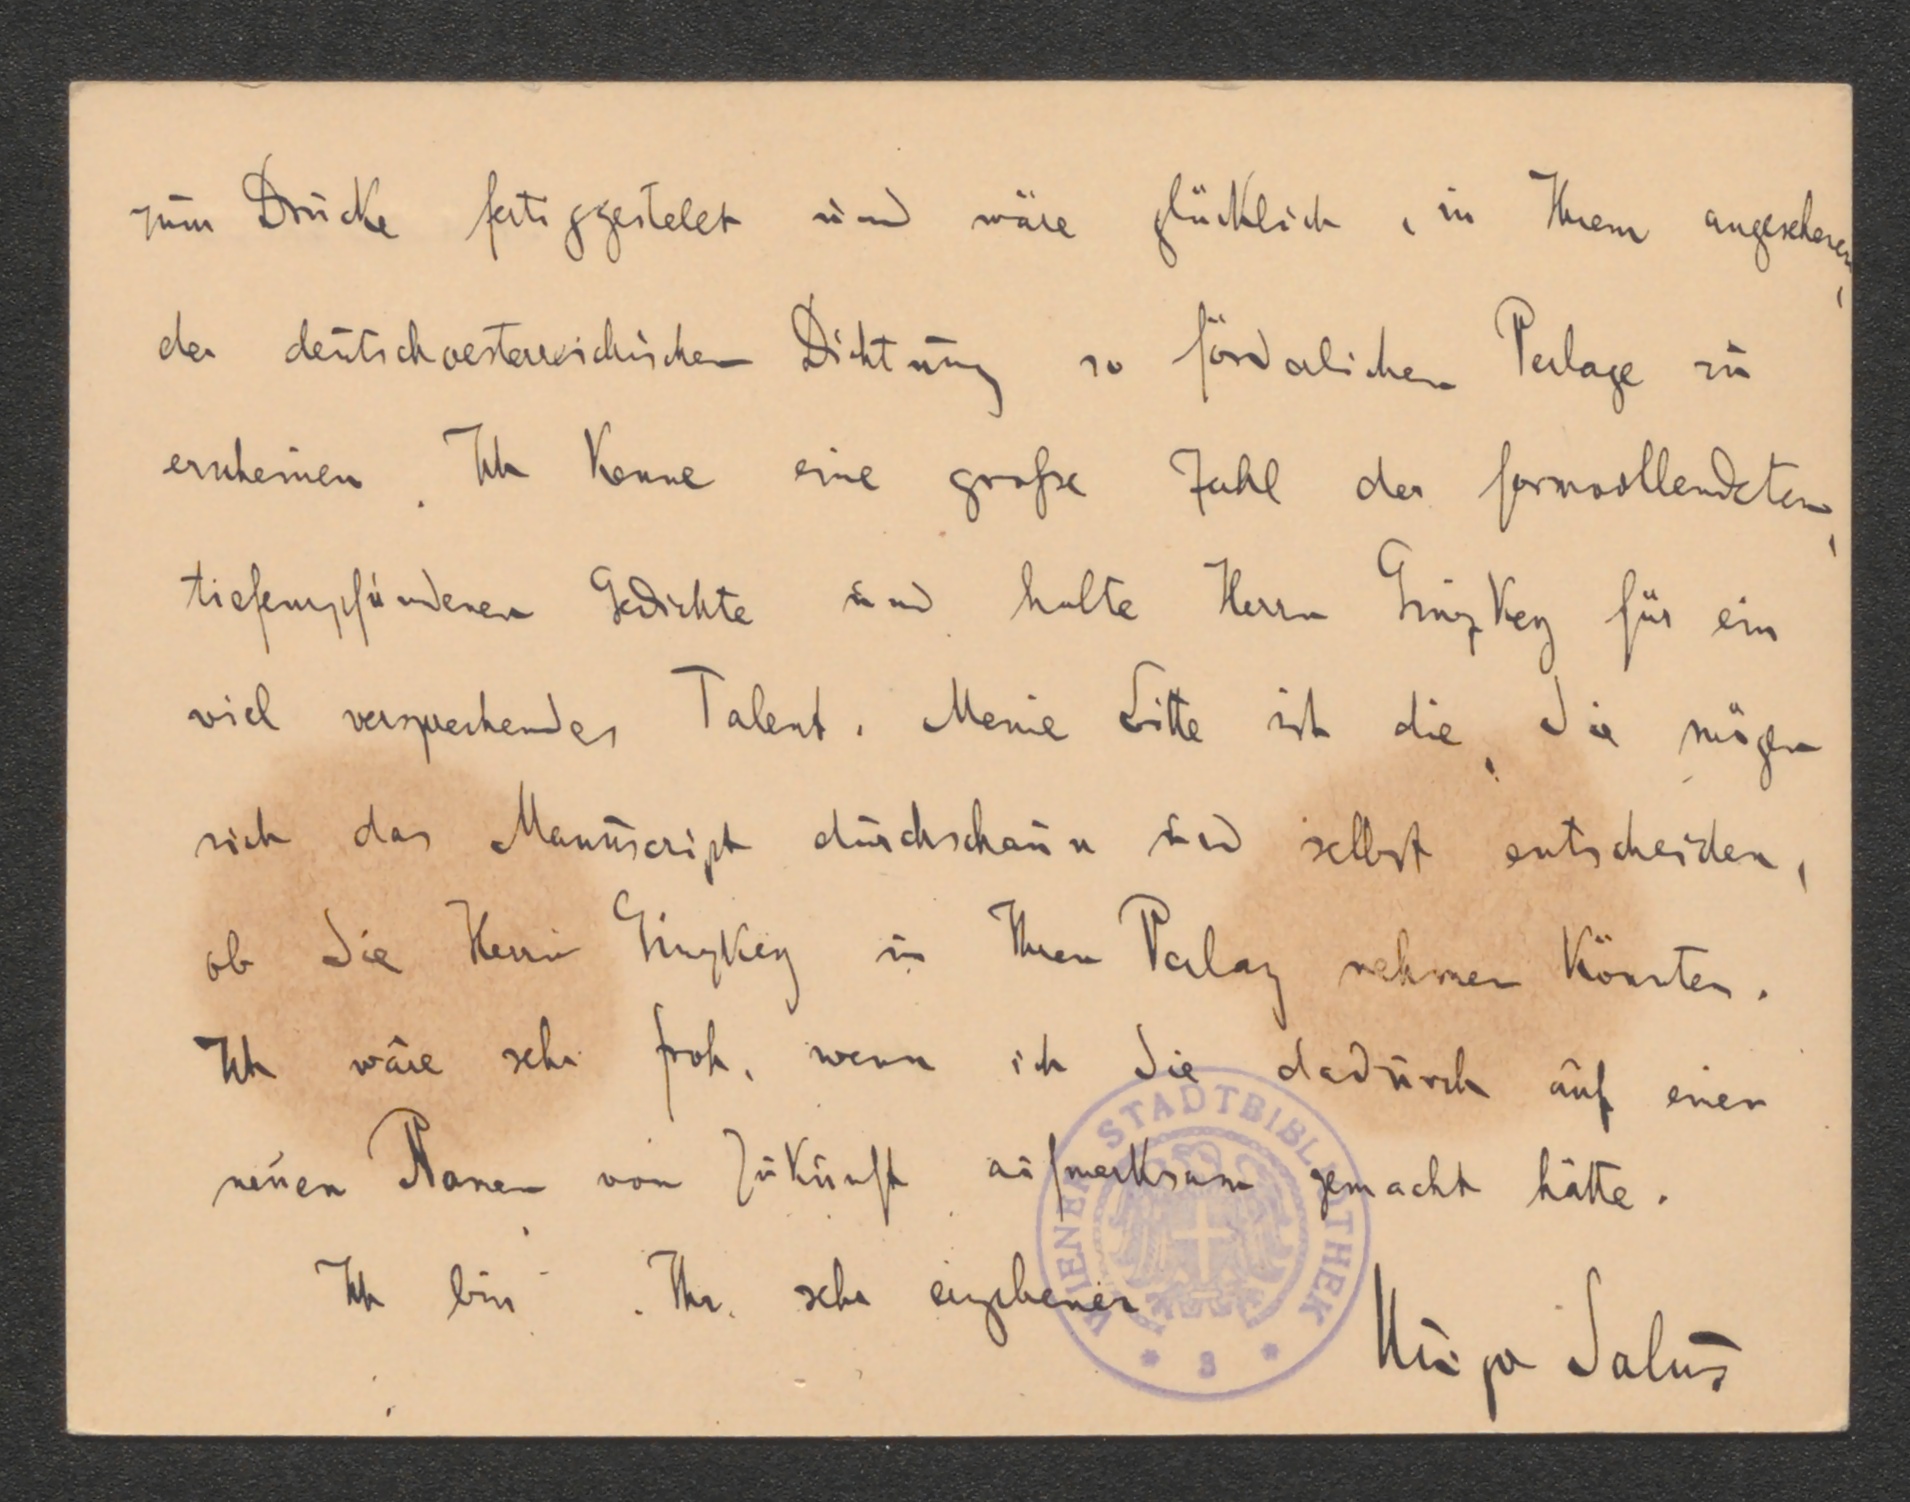 zum Drucke fertiggestellt und wäre glücklich, in Ihrem angesehenen,
der deutschoesterreichischen Dichtung so förderlichen Verlage zu
erscheinen. Ich kenne eine große Zahl der formvollendeten,
tiefempfundenen Gedichte und halte Herrn Ginzkey für ein
viel versprechendes Talent. Meine Bitte ist die, Sie mögen
sich das Manuscript durchschaun und selbst entscheiden,
ob Sie Herrn Ginzkey in Ihren Verlag nehmen könnten.
Ich wäre sehr froh, wenn ich Sie dadurch auf einen
neuen Namen von Zukunft aufmerksam gemacht hätte.
Ich bin Ihr sehr ergebener
Hugo Salus
WIENER STADTBIBLIOTHEK
* 3 *